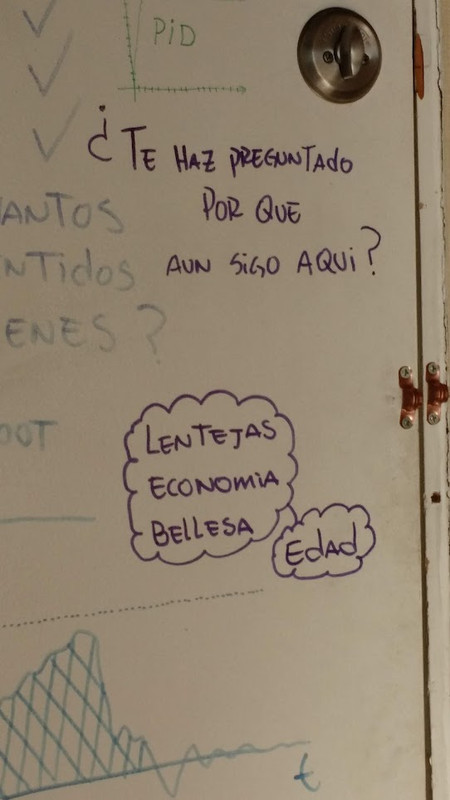 PID
¿TE HAZ PREGUNTADO
POR QUE
AUN SIGO AQUI?
ANTOS
NTIdOS
ENES?
OOT
LENTEJAS
ECONOMIA
BELLESA
EdAd
t